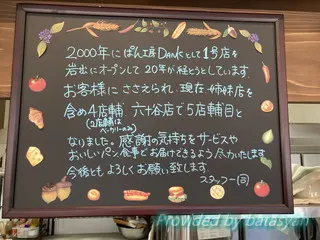 2000年にぱん工房Dankとして1号店を
岩出にオープンして20年が経とうとしています。
お客様にささえられ、現在、姉妹店を
含め4店舗、六十谷店で5店舗目と
(2店舗はベーカリーのみ)
なりました。感謝の気持ちをサービスや
おいしいパン、食事でお届けできるよう尽力いたします。
今後ともよろしくお願い致します。
スタッフ一同
Provided by batasyan